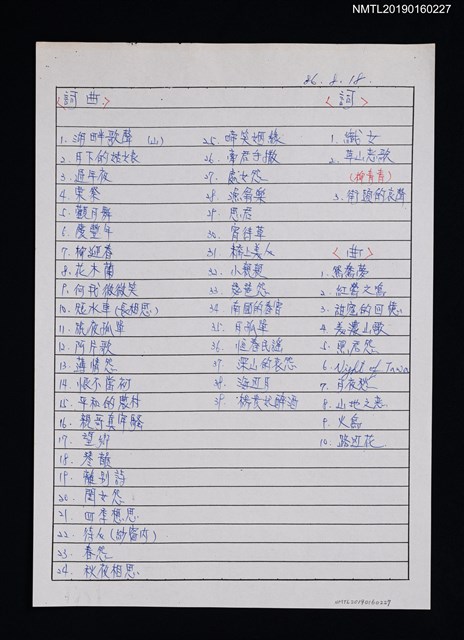 NMTL20190160227
26. 8. 18.
<詞 曲>
1. 湖畔歌聲 (山)
2. 月下的姑娘
3. 過年夜
4. 
5. 觀月舞
6. 慶豐年
7. 柳迎春
8. 花木蘭
9. 何我微微笑
10. 水車 (長相思)
11. 旅夜孤單
12. 阿片歌
13. 薄情怨
14. 恨不當初
15. 年私的農村
16. 親哥真宇騷
17. 望鄉
18. 琴韻
19. 離別詩
20. 閨女怨
21. 四季想思
22. 待女 (紗窗內)
23. 春怨
24. 秋夜相思
25. 啼笑姻緣
26. 
27. 處女怨
28. 漁翁樂
29. 思君
30. 宵待草
31. 橋上美人
32. 小親親
33. 琵琶怨
34. 南國的春宵
35. 月孤單
36. 恒春民謠
37. 深山的哀怨
38. 海邊月
39. 楊貴妃醉酒
<詞>
1. 織女
2. 草山恋歌
(柳青青)
3. 街頭的夜聲
<曲>
1. 鴛鴦夢
2. 紅鶯之鳴
3. 
4. 美濃山歌
5. 思君怨
6. Night of Taiwan
7. 月夜愁
8. 山地之恋
9. 火
10. 路邊花
NMTL20190160227